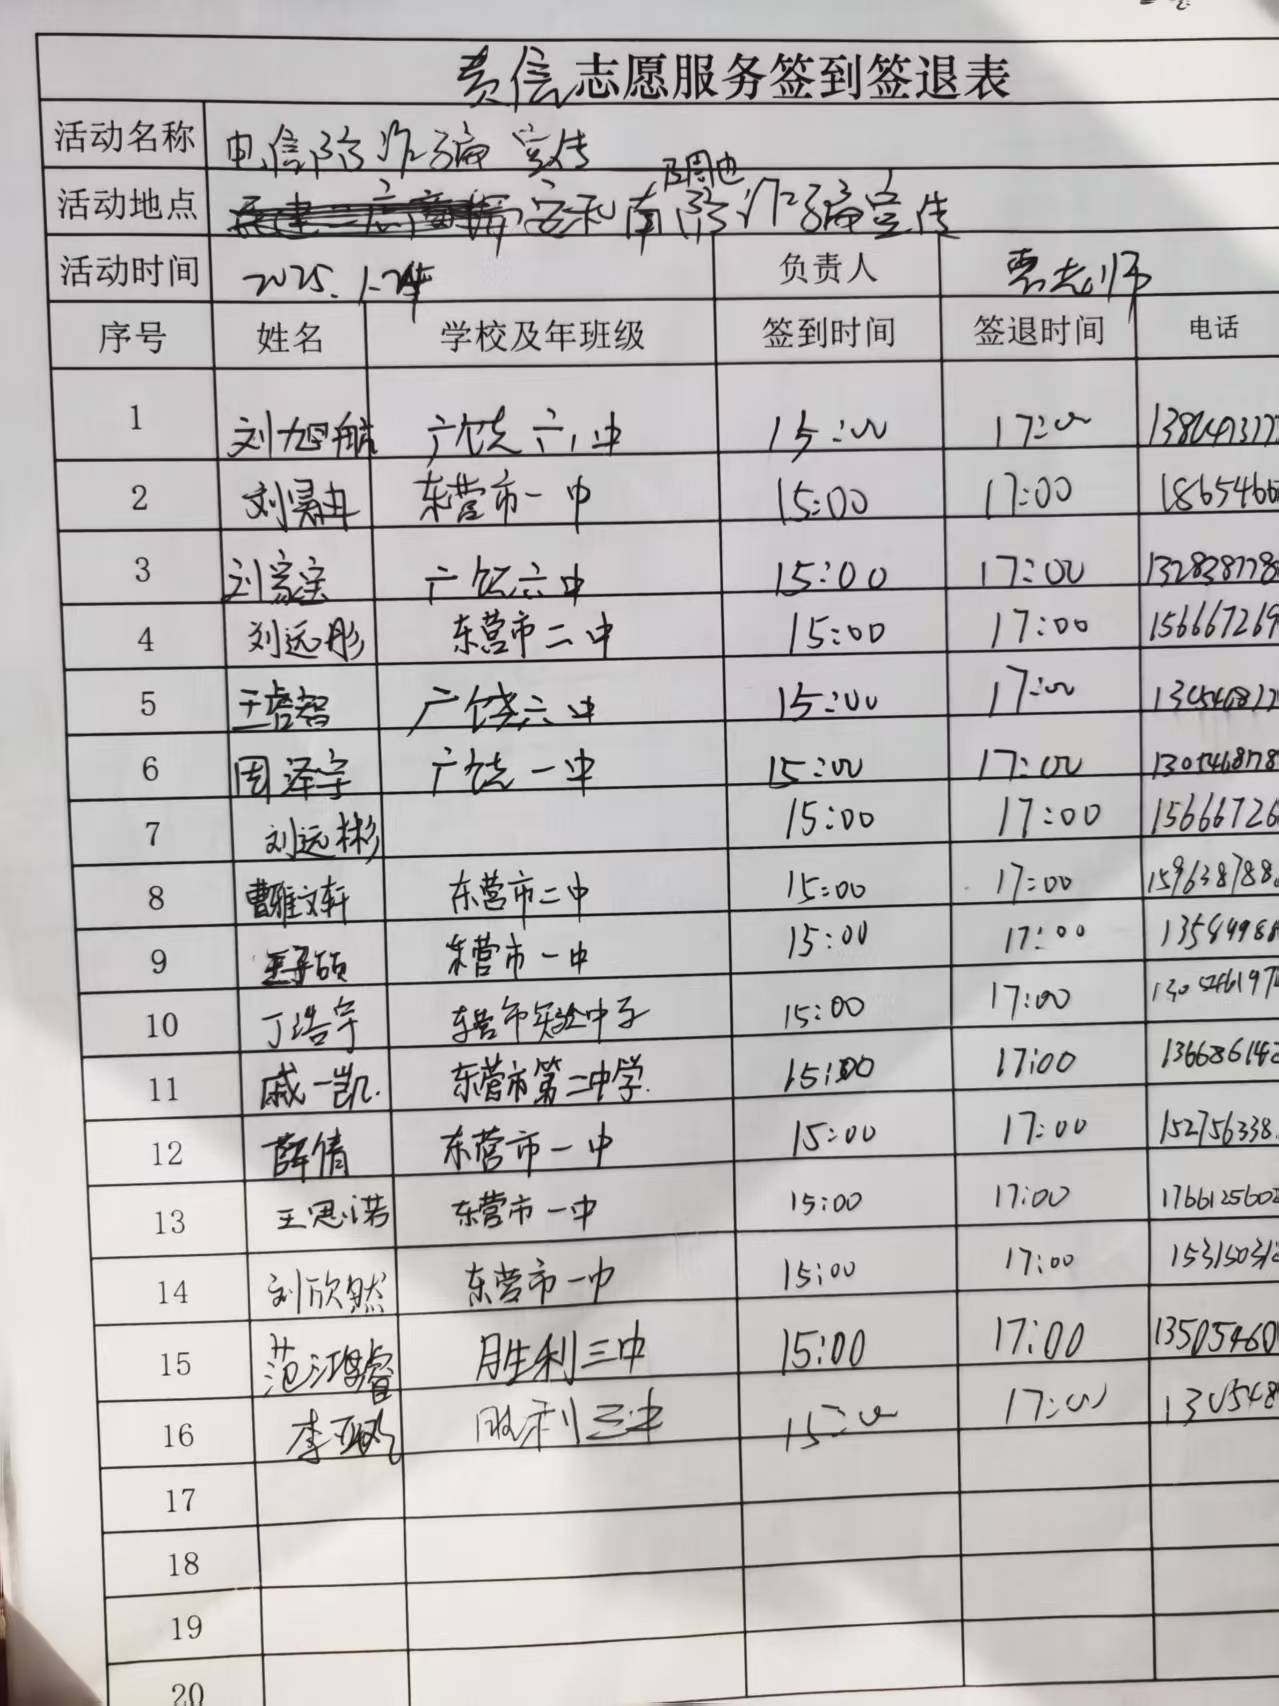 志愿服务签到签退表
活动名称 电信防诈骗宣传
活动地点 安和南区周边防诈骗宣传
活动时间 2025. 负责人 贾老师
序号 姓名 学校及年班级 签到时间 签退时间 电话
1 刘旭航 广饶六中 15:00 17:00
2 刘昊冉 东营市一中 15:00 17:00 18654660
3 刘家宝 广饶六中 15:00 17:00 1328387780
4 刘远彤 东营市二中 15:00 17:00 156667269
5 广饶六中 15:00 17:00
6 周泽宇 广饶一中 15:00 17:00
7 刘远彬 15:00 17:00 15666726
8 曹雅文轩 东营市二中 15:00 17:00 1596387880
9 王子硕 东营市一中 15:00 17:00 13589988
10 丁浩宇 东营市实验中学 15:00 17:00
11 戚一凯. 东营市第二中学. 15:00 17:00
12 薛倩 东营市一中 15:00 17:00 152756338
13 王思诺 东营市一中 15:00 17:00 1766125602
14 刘欣然 东营市一中 15:00 17:00
15 范鸿睿 胜利三中 15:00 17:00 135054600
16 李 胜利三中 15:00 17:00
17
18
19
20